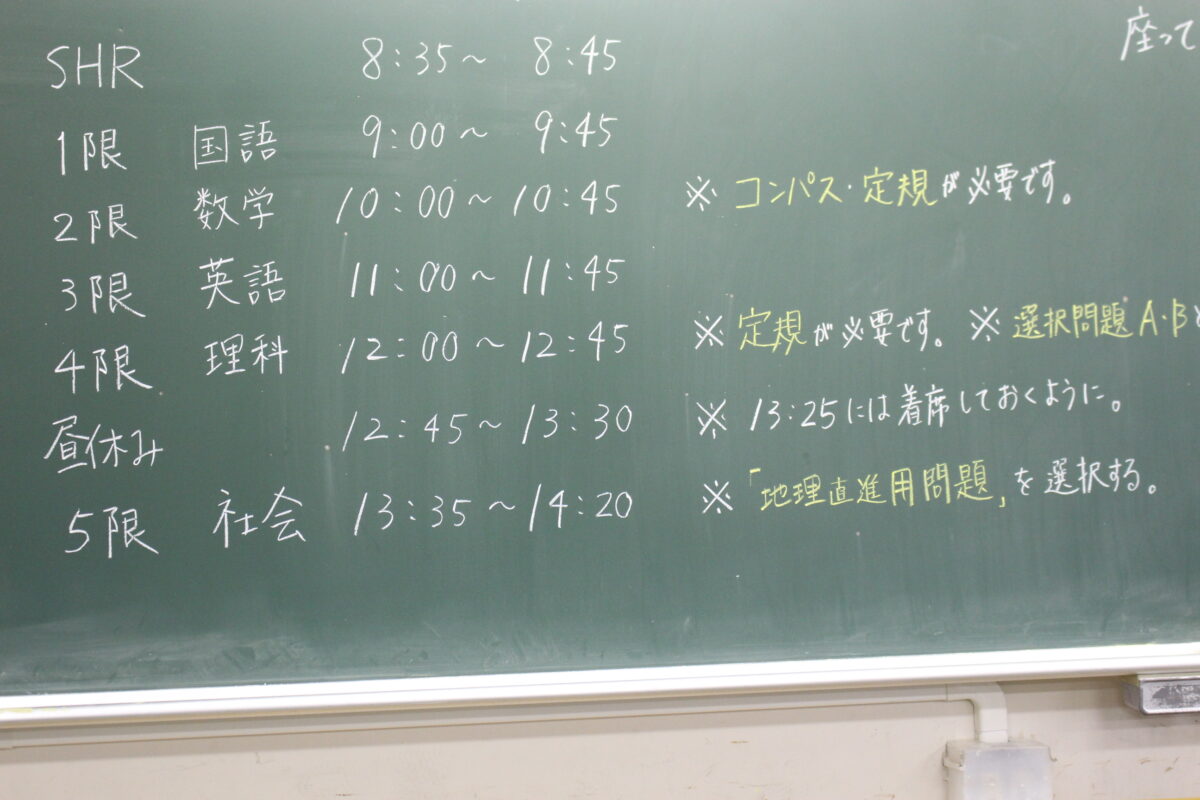 座って
SHR 8:35～ 8:45
1限 国語 9:00～ 9:45
2限 数学 10:00～10:45 ※ コンパス・定規が必要です。
3限 英語 11:00～11:45
4限 理科 12:00～12:45 ※ 定規が必要です。 ※ 選択問題A・B
昼休み 12:45～13:30 ※ 13:25には着席しておくように。
5限 社会 13:35～14:20 ※「地理直進用問題」を選択する。